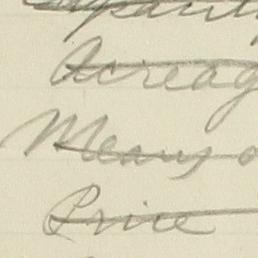 Acreag
Means o
Price